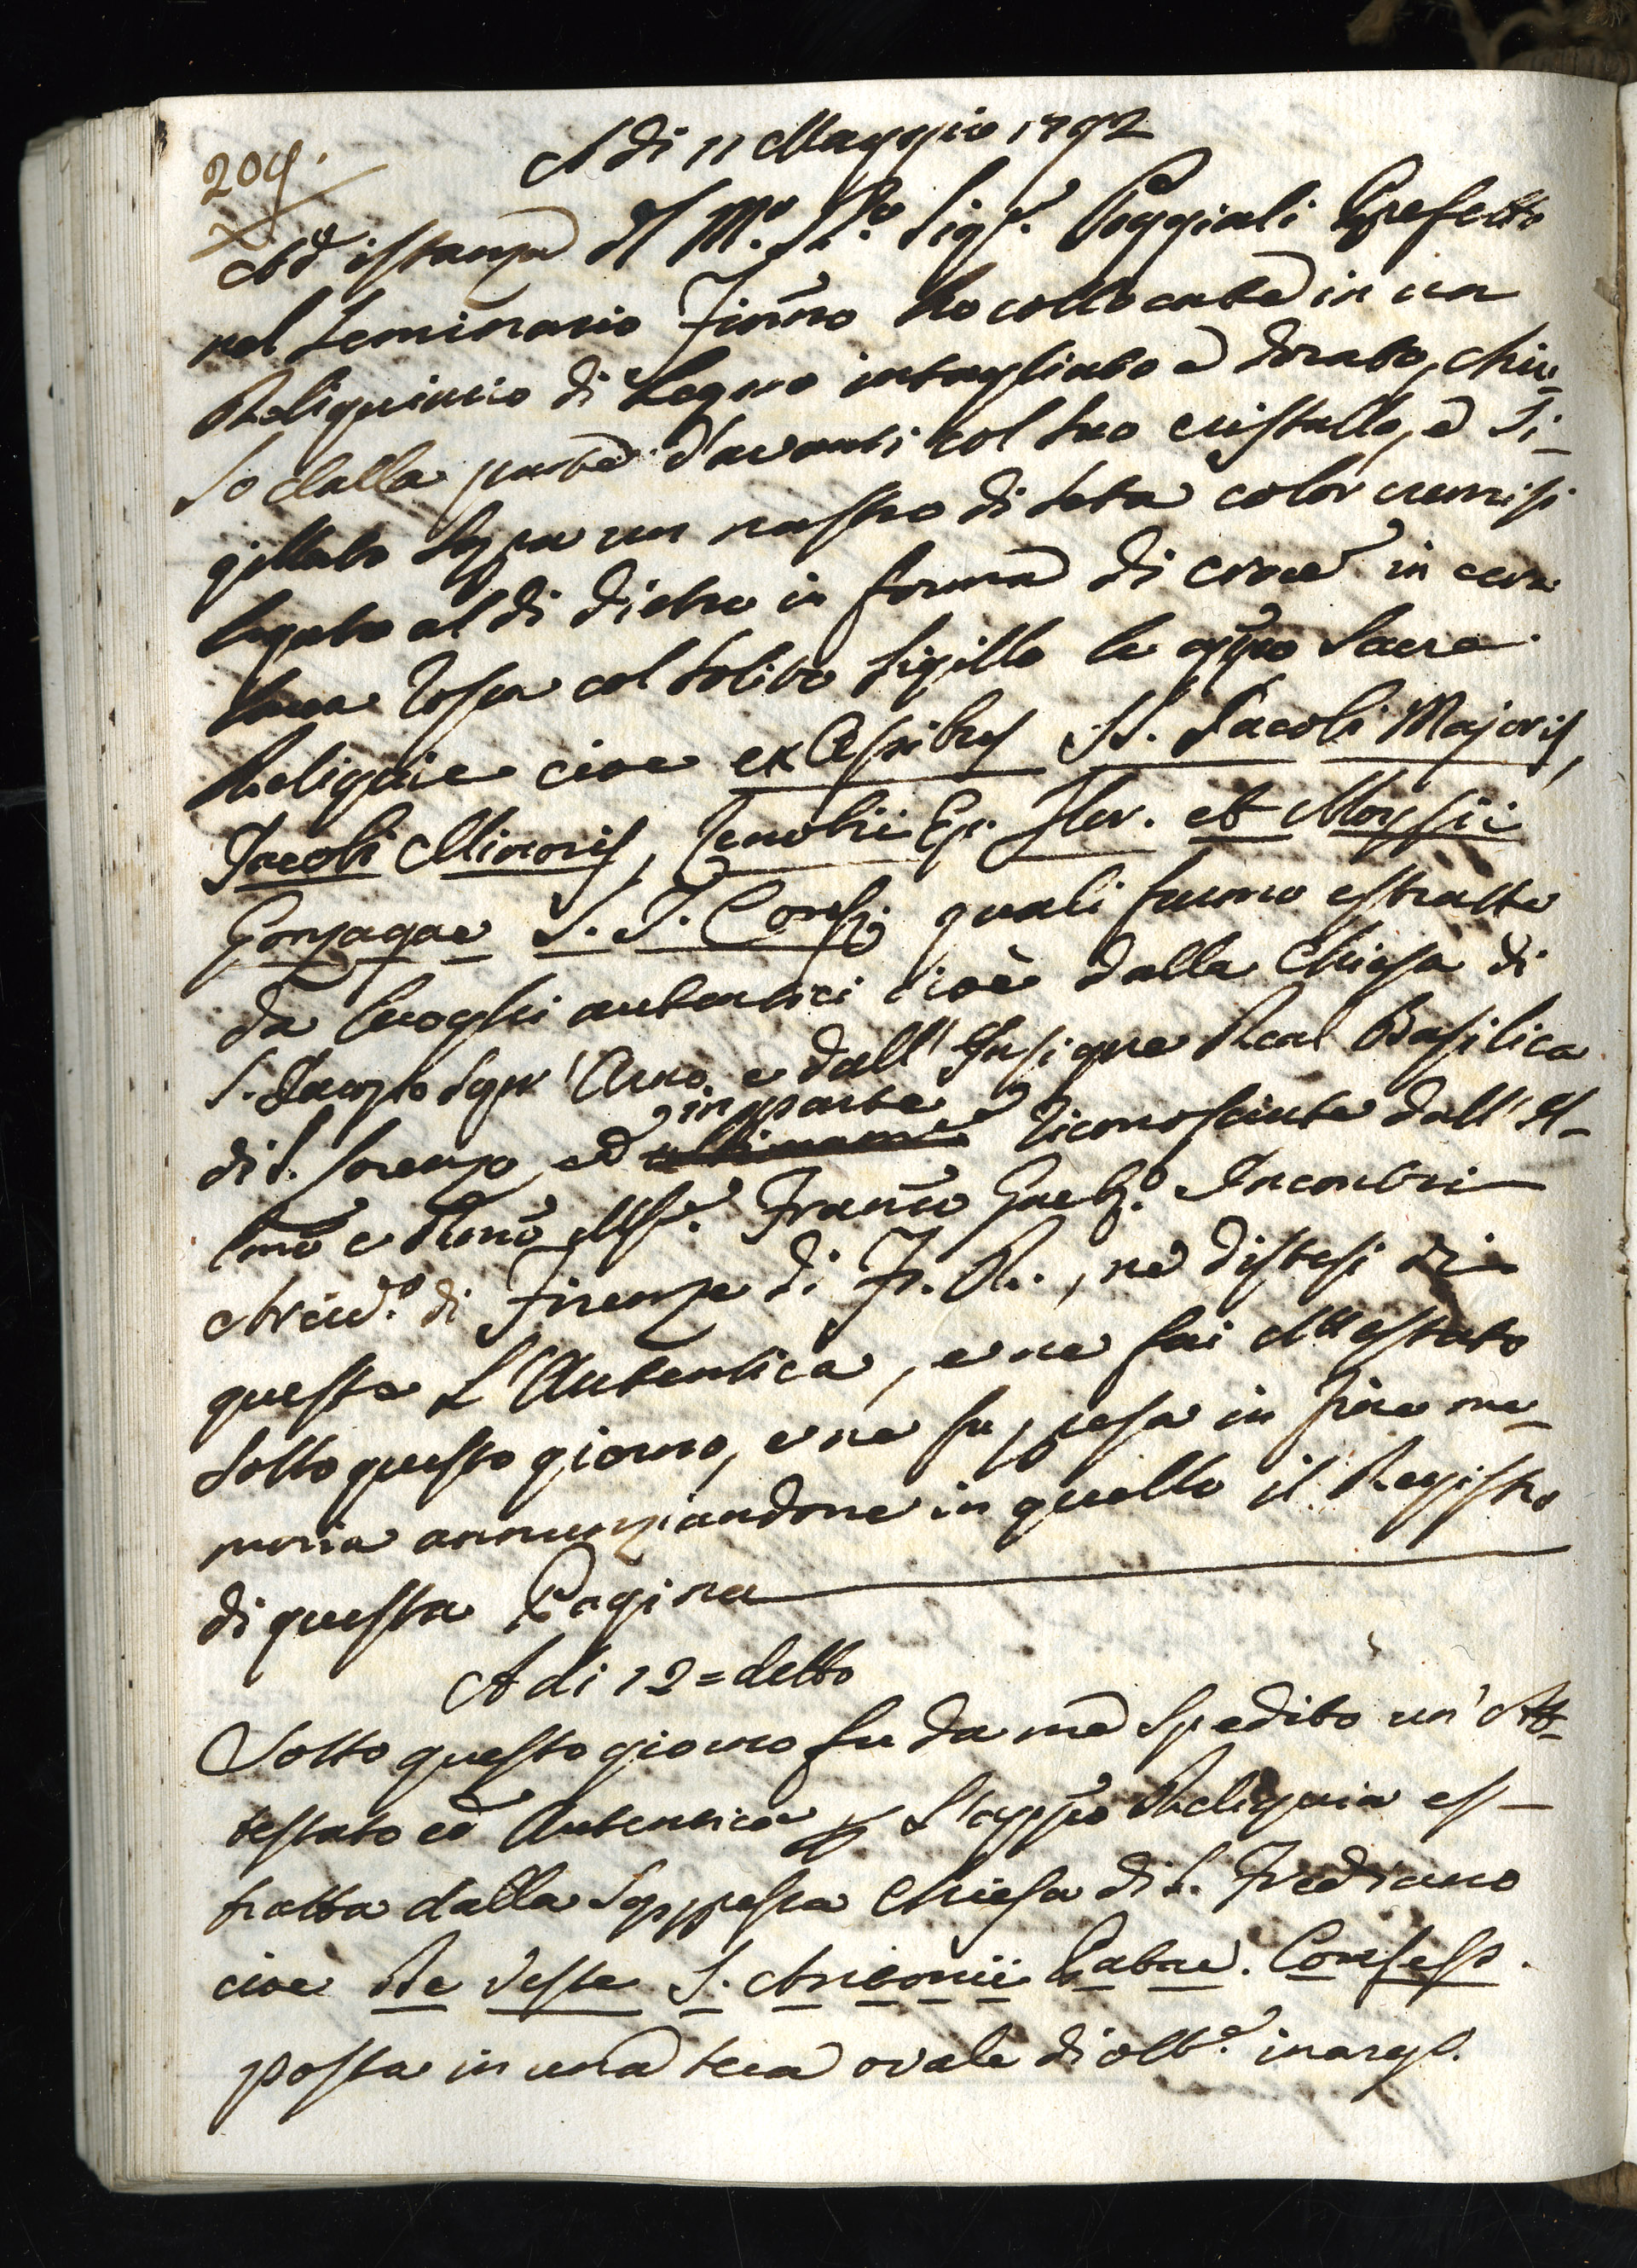 204.
A di 11 Maggio 1792
Ad istanza del M.o R.o Sig.e Poggiali Prefetto
nel Seminario Fior.no ho collocate in un
Reliquiario di Legno intagliato e dorato, chiu-
so dalla parte d'avanti col suo cristallo, e si-
gillato sopra un nastro di seta color cremisi
legato al di dietro in forma di croce in cera
lacca rossa col solito sigillo le app.o Sacre
Reliquie cioe ex Ossibus SS. Jacobi Majoris,
Jacobi Minoris, Zenobii Ep. Flor. et Aloysii
Gonzagae S. J. Conf. quali furno estratte
da luoghi autentici cioè dalla Chiesa di
S. Jacopo Sopr'Arno, e dall'Insigne Real Basilica
in parte
di S. Lorenzo, ed ultimame riconosciute dall'Il-
lmo e Rmo Msr.e Franco Gaet.o Incontri
Arciv.o di Firenze di F. R., ne distesi di
queste L'Autentica, e ne feci Attestato
sotto questo giorno, e ne fu presa in fine me-
moria annunziandone in quello il Registro
di questa Pagina
A di 12 = detto
Sotto questo giorno fu da me spedito un'At-
testato ed Autentica p L'app.o Reliquia es-
tratta dalla soppressa Chiesa di S. Frediano
cioè Ae Veste S. Antonii Patav. Confess.
posta in una teca ovale di ott.e inarg.